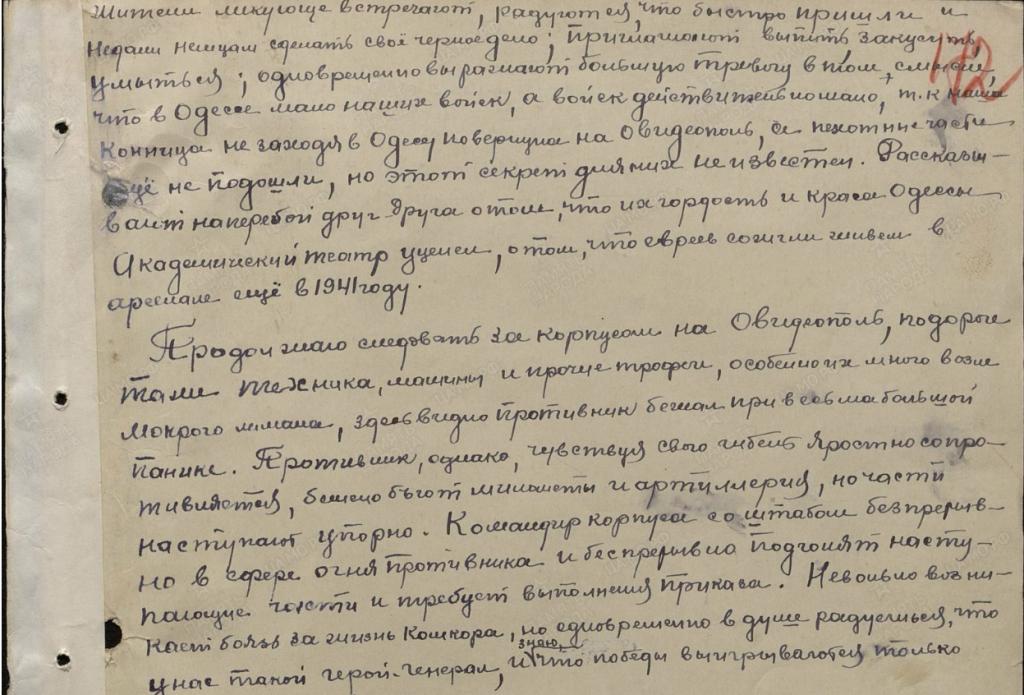 Жители ликующе встречают, радуются, что быстро пришли и
недали немцам сделать своё черное дело; приглашают выпить, закусить,
умыться; одновременно выражают большую тревогу в том смысле,
172
что в Одессе мало наших войск, а войск действительно мало, т.к наша
конница не заходя в Одессу повернула на Овидеополь, а пехотные части
ещё не подошли, но этот секрет для них не известен. Рассказы-
вают наперебой друг друга о том, что их гордость и краса Одессы
Академический театр уцелел, о том, что евреев сожгли живьем в
арсенале ещё в 1941 году.
Продолжаю следовать за корпусом на Овидеополь, по дороге
танки техника, машины и прочие трофеи, особенно их много возле
Мокрого лимана, здесь видно противник бежал при весьма большой
панике. Противник, однако, чувствуя свого гибель яростно сопро-
тивляется, бешено бьют минометы и артиллерия, но части
наступают упорно. Командир корпуса со штабом безпрерыв-
но в сфере огня противника и беспрерывно подгонят насту-
пающие части и требует выполнения приказа. Невольно возни-
кает боязь за жизнь Комкора, но одновременно в душе радуешься, что
у нас такой герой-генерал, и знаю, что победы выигрываются только